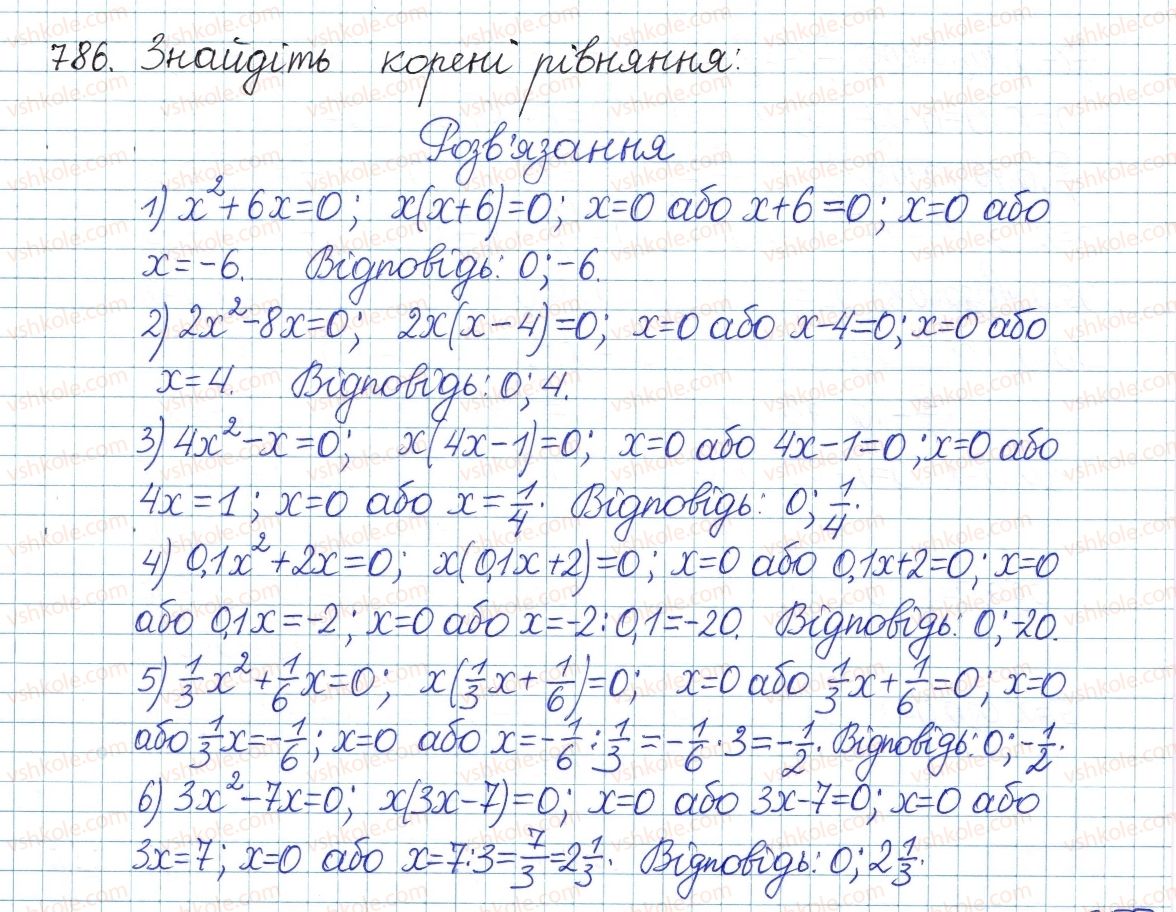 786. Знайдіть корені рівняння:
Розв'язання
1) x²+6x=0; x(x+6)=0; x=0 або x+6=0; x=0 або
x=-6. Відповідь: 0; -6.
2) 2x²-8x=0; 2x(x-4)=0; x=0 або x-4=0; x=0 або
x=4. Відповідь: 0; 4.
3) 4x²-x=0; x(4x-1)=0; x=0 або 4x-1=0; x=0 або
4x=1; x=0 або x=1/4. Відповідь: 0; 1/4.
4) 0,1x²+2x=0; x(0,1x+2)=0; x=0 або 0,1x+2=0; x=0
або 0,1x=-2; x=0 або x=-2:0,1=-20. Відповідь: 0; -20.
5) 1/3x²+1/6x=0; x(1/3x+1/6)=0; x=0 або 1/3x+1/6=0; x=0
або 1/3x=-1/6; x=0 або x=-1/6:1/3=-1/6·3=-1/2. Відповідь: 0; -1/2.
6) 3x²-7x=0; x(3x-7)=0; x=0 або 3x-7=0; x=0 або
3x=7; x=0 або x=7:3=7/3=2 1/3. Відповідь: 0; 2 1/3.